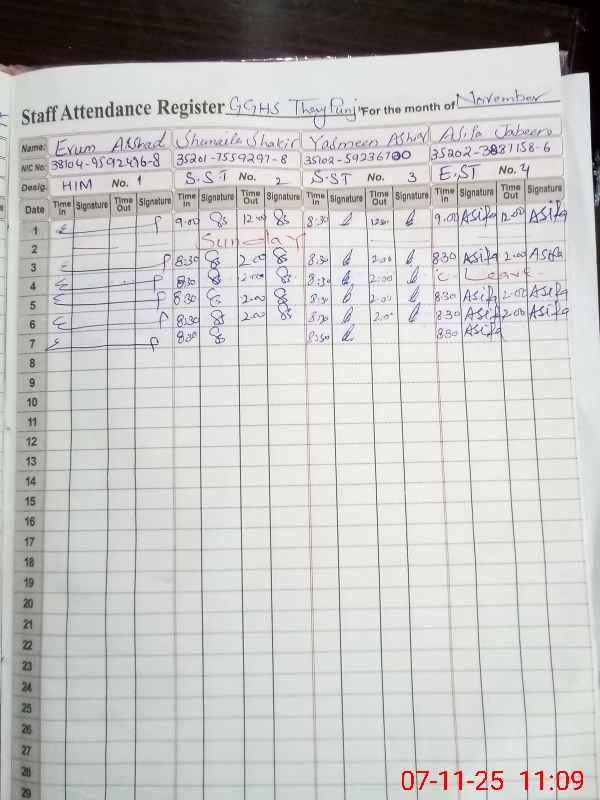 Staff Attendance Register GGHS They Punj For the month of November
Name: Erum Arshad Shumaila Shakir Yasmeen Ashraf Asifa Jabeen
NIC No. 38104-9592496-8 35201-7559297-8 35202-3831158-6
Desig. HIM No. 1 S.ST No. 2 S.ST No. 3 E.ST No. 4
Date Time In Signature Time Out Signature Time In Signature Time Out Signature Time In Signature Time Out Signature Time In Signature Time Out Signature
1 9.00 12.00 8:30 12.00 9.00 Asifa 12.00 Asifa
2 Sunday
3 8:30 2.00 8:30 2.00 8:30 Asifa 2.00 Asifa
4 8:30 2.00 8:30 2.00 C. Leave
5 8:30 2.00 8:30 2.00 8:30 Asifa 2.00 Asifa
6 8:30 2.00 8:30 2.00 8:30 Asifa 2.00 Asifa
7 8:30 8:30 8:30 Asifa
8
9
10
11
12
13
14
15
16
17
18
19
20
21
22
23
24
25
26
27
28
29
07-11-25 11:09